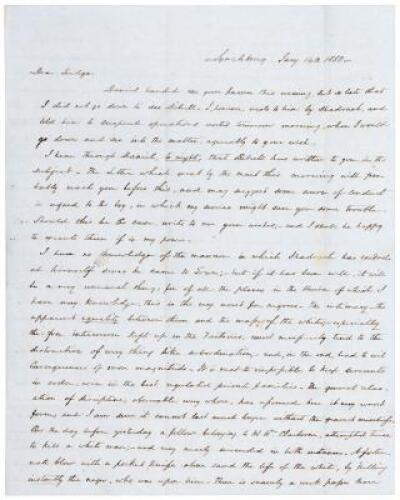 Lynchburg Jany 14th 1858.
Dear Judge,
Daniel handed me your favor this evening, but so late that
I did not go down to see Dibrell. I however wrote to him by Shadrach, and
told him to suspend operations until tomorrow morning, when I would
go down and see into the matter, agreeably to your wish.
I hear through Daniel, to night, that Dibrell has written to you on the
subject. The letter which went by the mail this morning will pro-
bably reach you before this, and may suggest some course of conduct
in regard to the boy, in which my services might save you some trouble.
Should this be the case, write to me your wishes, and I shall be happy
to execute them if in my power.
I have no knowledge of the manner in which Shadrach has conduct-
ed himself since he came to Town; but if it has been well, it will
be a very unusual thing, for of all the places in the Union of which I
have any knowledge, this is the very worst for negroes. The intimacy, the
apparent equality between them and the mass of the whites, especially
the free intercourse kept up in the Factories, must necessarily tend to the
destruction of every thing like subordination, and, in the end, lead to evil
consequences of some magnitude. It is next to impossible to keep servants
in order, even in the best regulated private families. The general relax-
ation of discipline, observable every where, has reached here its very worst
form, and I am sure it cannot last much longer without the gravest
On the day before yesterday a fellow belonging to Wm Claiborne, attempted twice
to kill a white man, and very nearly succeeded in both instances. A fortu-
nate blow with a pocket knife alone saved the life of the white, by killing
instantly the negro, who was upon him. There is scarcely a week passes more